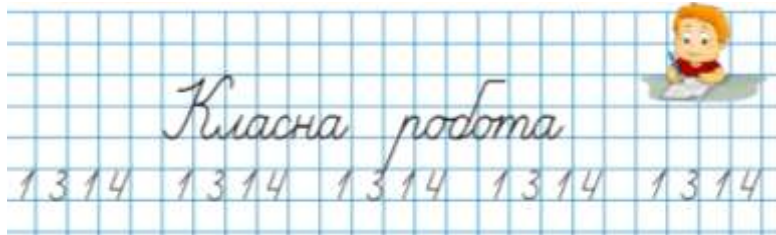 Класна робота
1 3 1 4 1 3 1 4 1 3 1 4 1 3 1 4 1 3 1 4